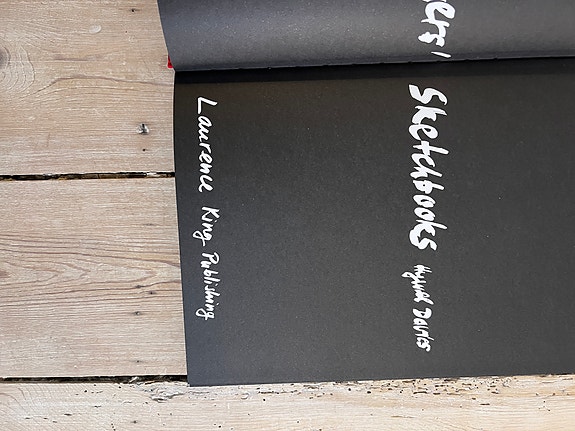 ers'
Sketchbooks
Hywel Davies
Laurence King Publishing